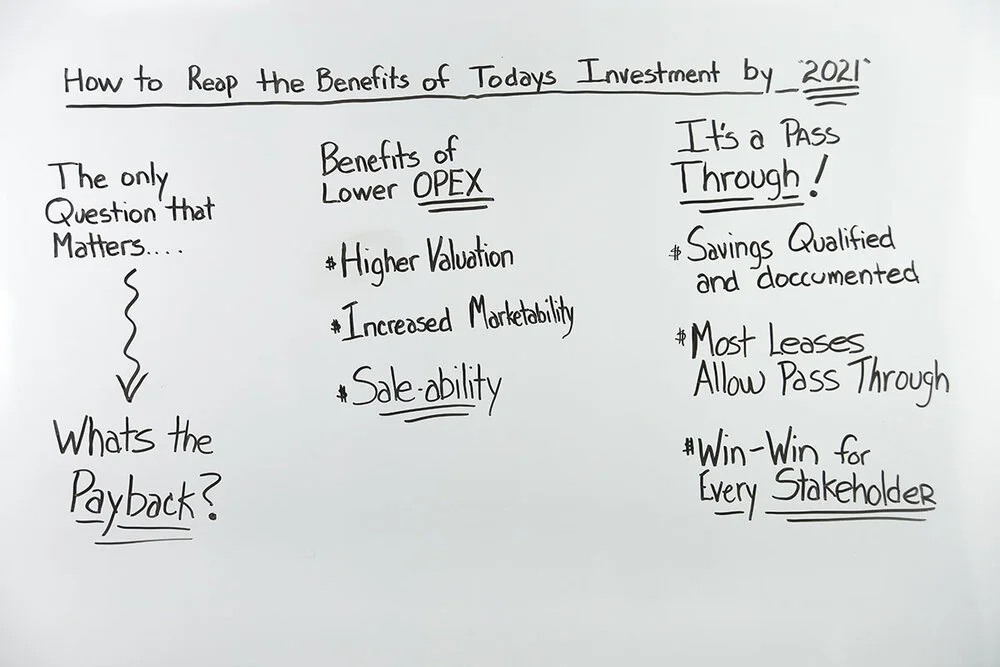 How to Reap the Benefits of Todays Investment by "2021"
The only
Question that
Matters....
Whats the
Payback?
Benefits of
Lower OPEX
$Higher Valuation
$Increased Marketability
$Sale-ability
It's a PASS
Through!
$Savings Qualified
and doccumented
$Most Leases
Allow Pass Through
$Win-Win for
Every Stakeholder